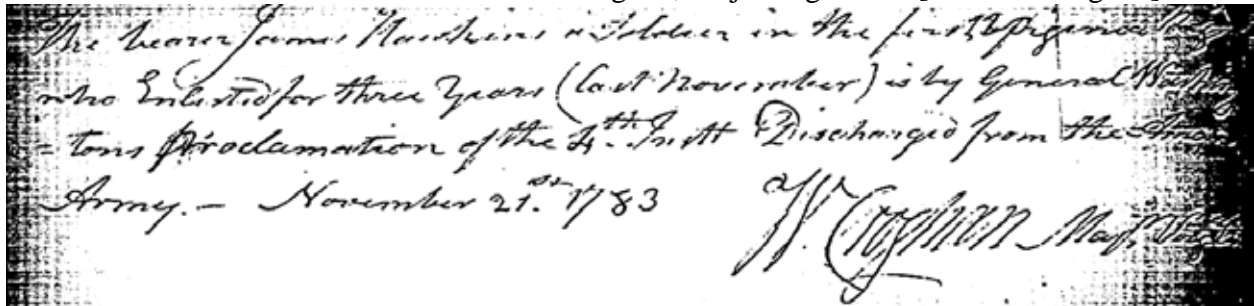 The bearer James Hawkins a Soldier in the first Virginia
who Enlisted for three Years (last November) is by General Washing
- tons Proclamation of the 4th. Instt Discharged from the
Army. - November 21.st 1783
W. Croghan Maj.